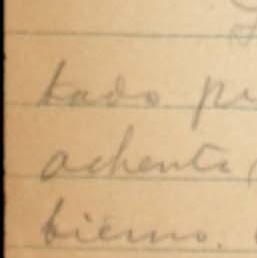 tado pr
achenta (
bierno.